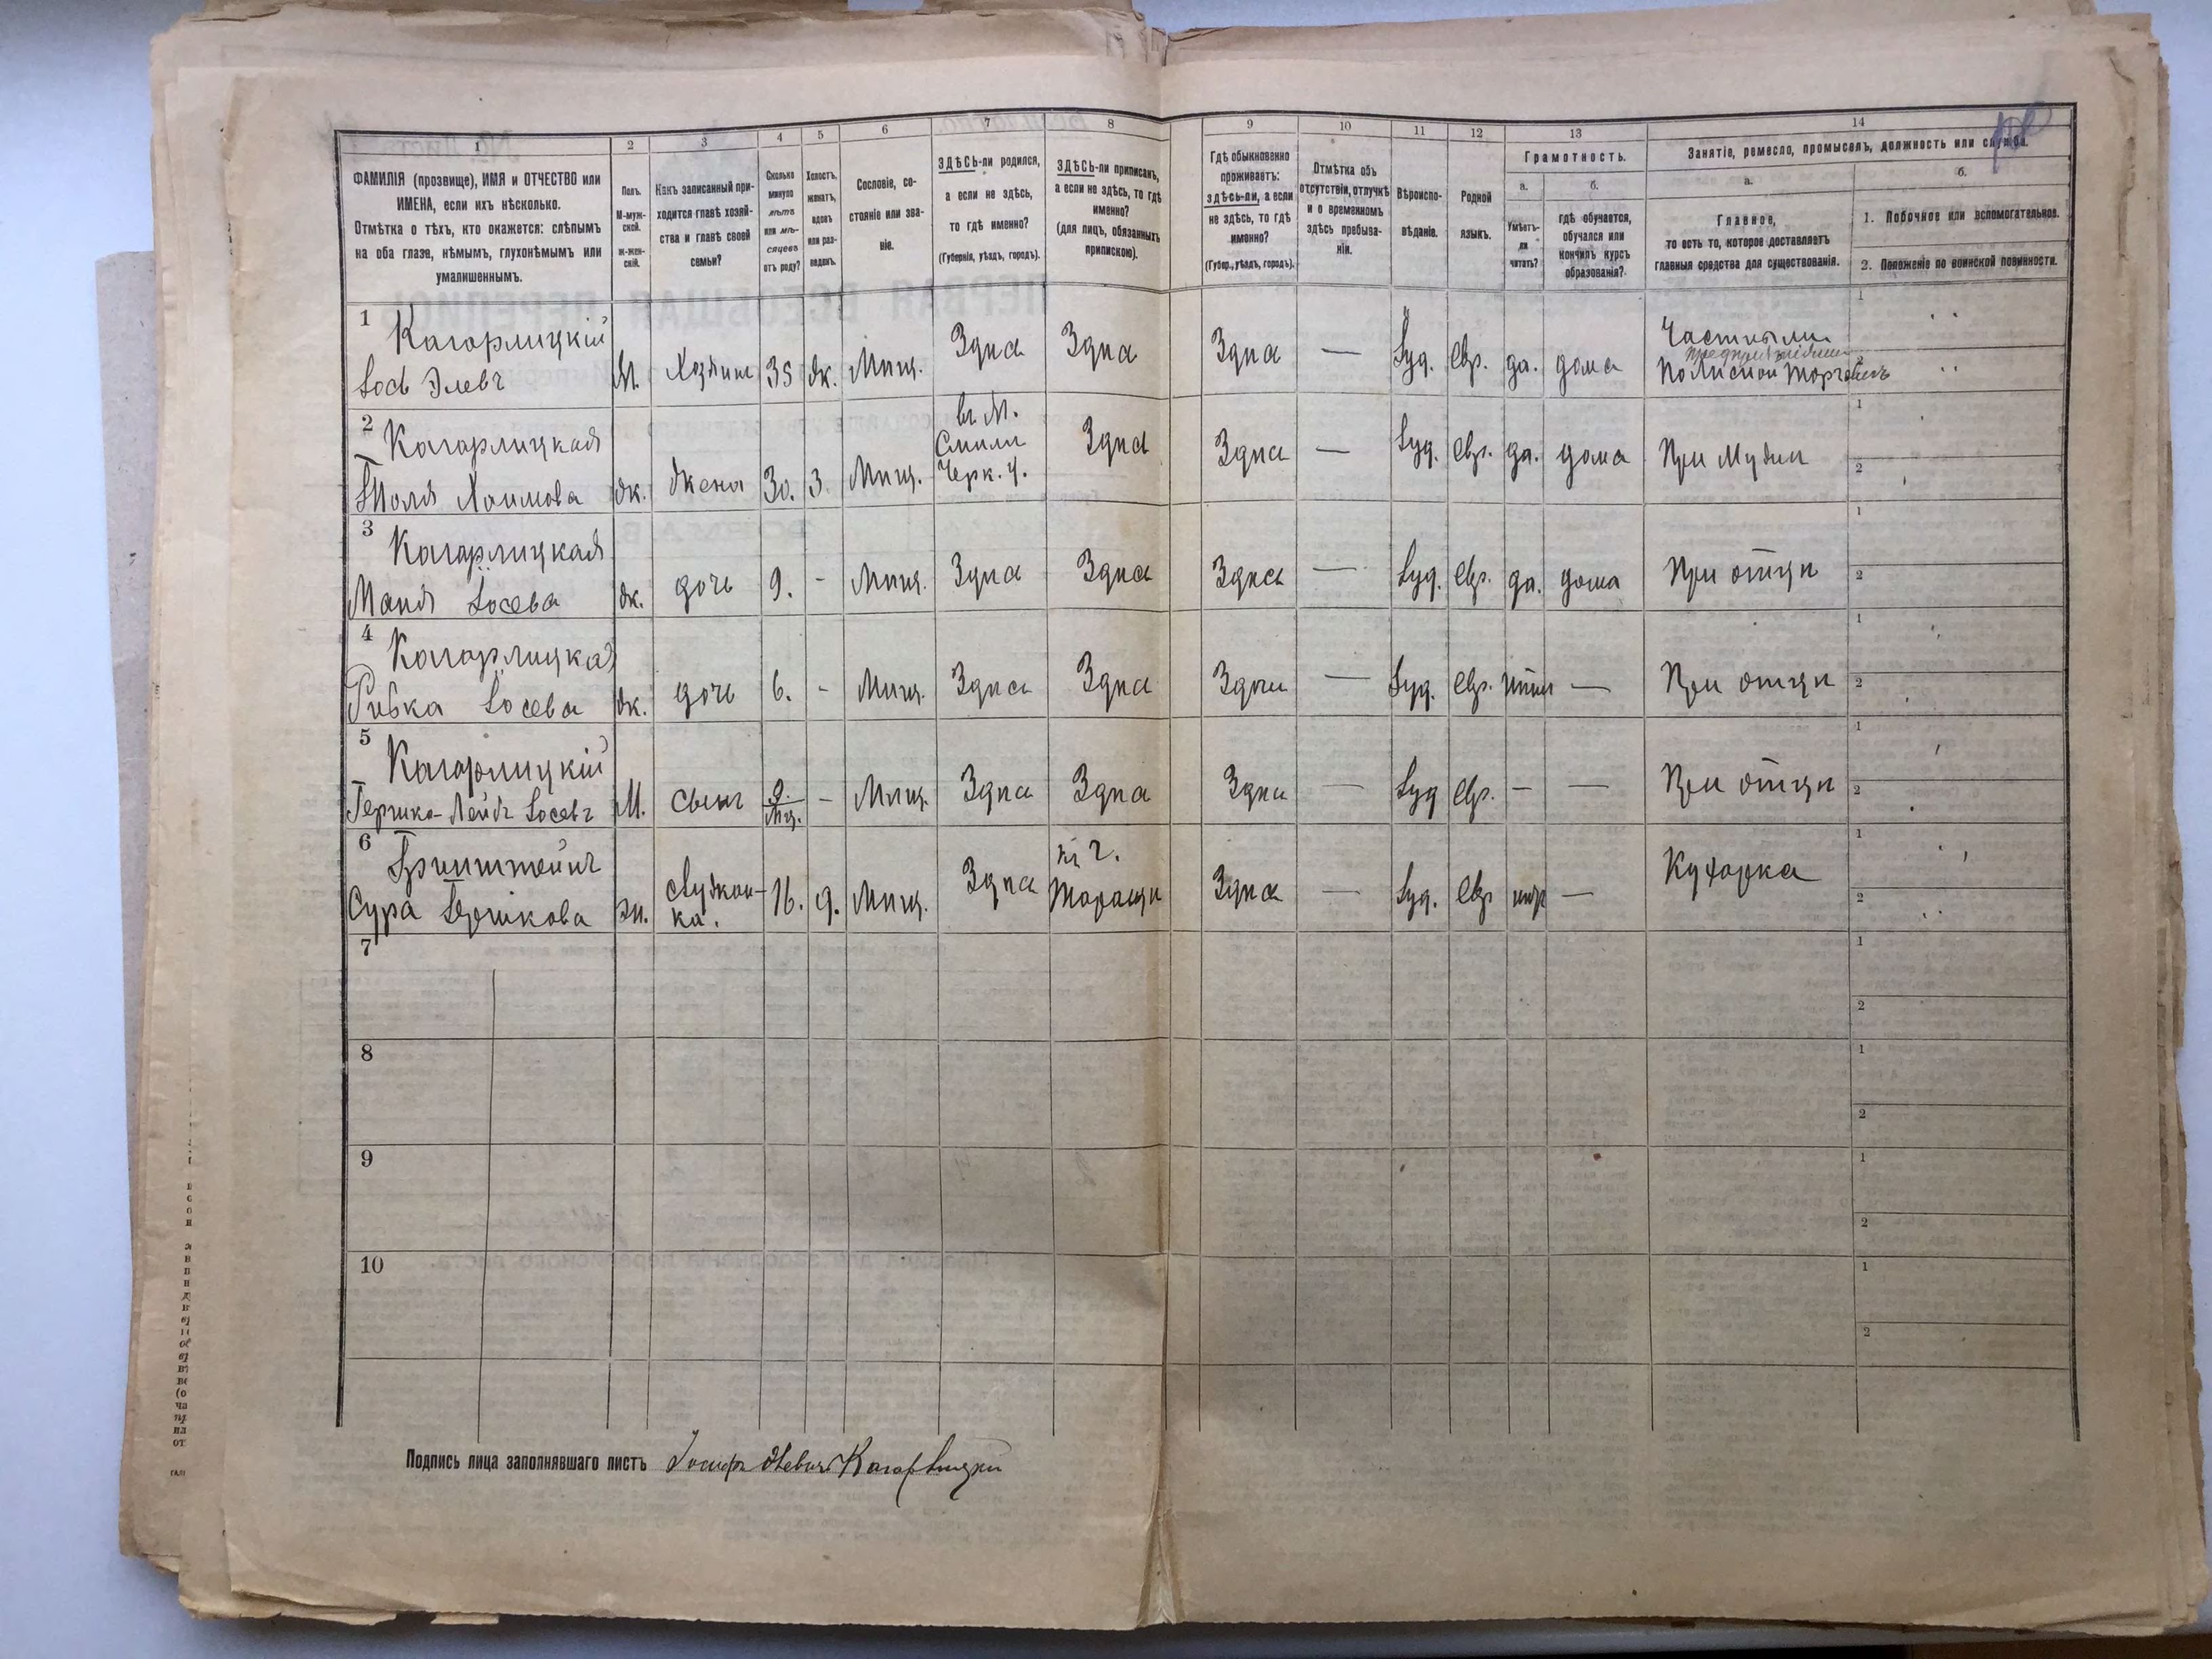 1 2 3 4 5 6 7 8 9 10 11 12 13 14
ФАМИЛІЯ (прозвище), ИМЯ и ОТЧЕСТВО или
ИМЕНА, если ихъ нѣсколько.
Отмѣтка о тѣхъ, кто окажется: слѣпымъ
на оба глаза, нѣмымъ, глухонѣмымъ или
умалишеннымъ.
Полъ.
М-муж-
ской.
ж-жен-
скій.
Какъ записанный при-
ходится главѣ хозяй-
ства и главѣ своей
семьи?
Сколько
минуло
лѣтъ
или мѣ-
сяцевъ
отъ роду?
Холостъ,
женатъ,
вдовъ
или раз-
веденъ.
Сословіе, со-
стояніе или зва-
ніе.
ЗДѢСЬ-ли родился,
а если не здѣсь,
то гдѣ именно?
(Губернія, уѣздъ, городъ).
ЗДѢСЬ-ли приписанъ,
а если не здѣсь, то гдѣ
именно?
(для лицъ, обязанныхъ
припискою).
Гдѣ обыкновенно
проживаетъ:
здѣсь-ли, а если
не здѣсь, то гдѣ
именно?
(Губер., уѣздъ, городъ).
Отмѣтка объ
отсутствіи, отлучкѣ
и о временномъ
здѣсь пребыва-
ніи.
Вѣроиспо-
вѣданіе.
Родной
языкъ.
Грамотность.
а.
Умѣетъ-
ли
читать?
б.
гдѣ обучается,
обучался или
кончилъ курсъ
образованія?
Занятіе, ремесло, промыселъ, должность или служба.
а.
Главное,
то есть то, которое доставляетъ
главныя средства для существованія.
б.
1. Побочное или вспомогательное.
2. Положеніе по воинской повинности.
1 Кагарлицкій
Іось Элевъ М. Хозяинъ 35 ж. Мѣщ. Здѣсь Здѣсь Здѣсь — Іуд. Евр. да. дома Частными
Полисной торговль
1
2
2 Кагарлицкая
Хаимова ж. жена 30. З. Мѣщ. въ М.
Смѣли
Черк. у. Здѣсь Здѣсь — Іуд. Евр. да. дома При мужѣ
1
2
3 Кагарлицкая
Маня Іосева ж. дочь 9. - Мѣщ. Здѣсь Здѣсь Здѣсь — Іуд. Евр. да. дома При отцѣ
1
2
4 Кагарлицкая
Ривка Іосева ж. дочь 6. - Мѣщ. Здѣсь Здѣсь Здѣсь — Іуд. Евр. — При отцѣ
1
2
5 Кагарлицкій
Гершко-Лейбъ Іосевъ М. сынъ 9. мц. - Мѣщ. Здѣсь Здѣсь Здѣсь — Іуд Евр. - — При отцѣ
1
2
6
Сура Гершкова служан-
ка. 16. д. Мѣщ. Здѣсь г.
Таращи Здѣсь — Іуд. Евр — Кухарка
1
2
7
1
2
8
1
2
9
1
2
10
1
2
Подпись лица заполнявшаго листъ Іосифъ Кагарлицкій